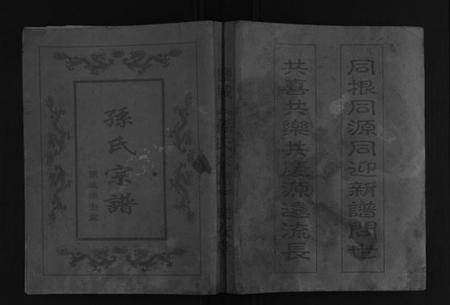 同根同源同迎新譜問世
共喜共樂共慶源遠流長
孫氏宗譜